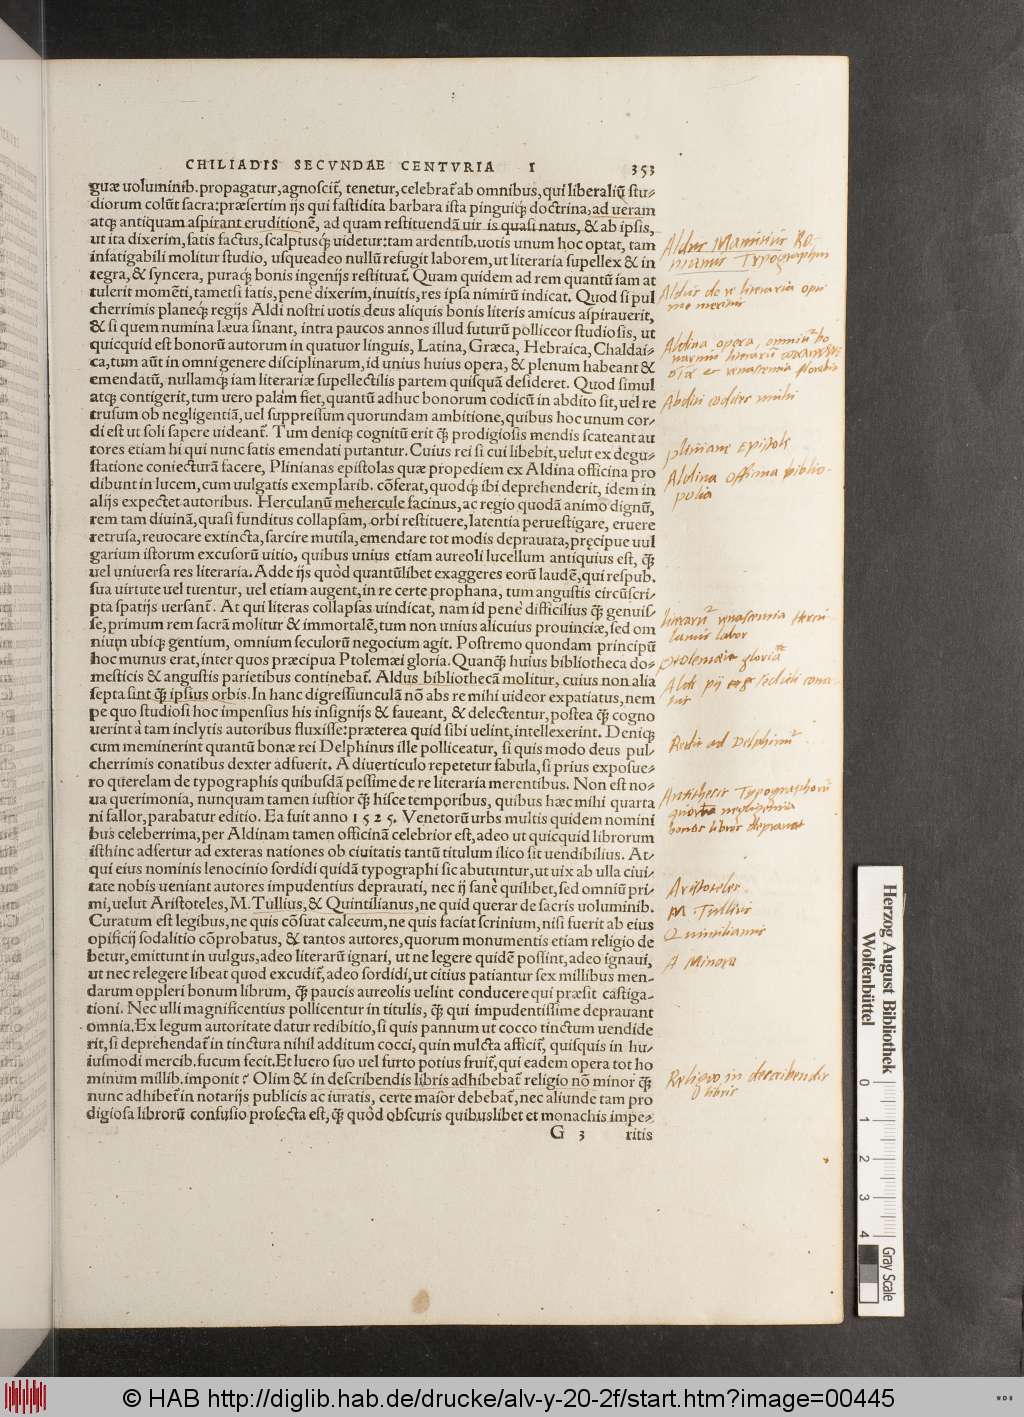 CHILIADIS SECVNDAE CENTVRIA I 353
guæ uoluminib. propagatur, agnoscit̃, tenetur, celebrat̃ ab omnibus, qui liberaliũ stu-
diorum colũt sacra: præsertim ijs qui fastidita barbara ista pinguiq́; doctrina, ad ueram
atq; antiquam aspirant eruditionẽ, ad quam restituendã uir is quasi natus, & ab ipsis,
ut ita dixerim, fatis factus, sculptusq́; uidetur: tam ardentib. uotis unum hoc optat, tam
infatigabili molitur studio, usqueadeo nullũ refugit laborem, ut literaria supellex & in
tegra, & syncera, puraq́; bonis ingenijs restituat̃. Quam quidem ad rem quantũ iam at
tulerit momẽti, tametsi fatis, penè dixerim, inuitis, res ipsa nimirũ indicat. Quod si pul
cherrimis planeq́; regijs Aldi nostri uotis deus aliquis bonis literis amicus aspirauerit,
& si quem numina læua sinant, intra paucos annos illud futurũ polliceor studiosis, ut
quicquid est bonorũ autorum in quatuor linguis, Latina, Græca, Hebraica, Chaldai-
ca, tum aũt in omni genere disciplinarum, id unius huius opera, & plenum habeant &
emendatũ, nullamq́; iam literariæ supellectilis partem quisquã desideret. Quod simul
atq; contigerit, tum uero palàm fiet, quantũ adhuc bonorum codicũ in abdito sit, uel re
trusum ob negligentiã, uel suppressum quorundam ambitione, quibus hoc unum cor-
di est ut soli sapere uideant̃. Tum deniq; cognitũ erit q̃; prodigiosis mendis scateant au
tores etiam hi qui nunc satis emendati putantur. Cuius rei si cui libebit, uelut ex degu-
statione coniecturã facere, Plinianas epistolas quæ propediem ex Aldina officina pro
dibunt in lucem, cum uulgatis exemplarib. cõferat, quodq́; ibi deprehenderit, idem in
alijs expectet autoribus. Herculanũ mehercule facinus, ac regio quodã animo dignũ,
rem tam diuinã, quasi funditus collapsam, orbi restituere, latentia peruestigare, eruere
retrusa, reuocare extincta, sarcire mutila, emendare tot modis deprauata, pręcipue uul
garium istorum excusorũ uitio, quibus unius etiam aureoli lucellum antiquius est, q̃;
uel uniuersa res literaria. Adde ijs quòd quantũlibet exaggeres eorũ laudẽ, qui respub.
sua uirtute uel tuentur, uel etiam augent, in re certe prophana, tum angustis circũscri-
pta spatijs uersant̃. At qui literas collapsas uindicat, nam id penè difficilius q̃; genuis-
se, primum rem sacrã molitur & immortalẽ, tum non unius alicuius prouinciæ, sed om
nium ubiq; gentium, omnium seculorũ negocium agit. Postremo quondam principũ
hoc munus erat, inter quos præcipua Ptolemæi gloria. Quanq̃; huius bibliotheca do-
mesticis & angustis parietibus continebat̃. Aldus bibliothecã molitur, cuius non alia
septa sint q̃; ipsius orbis. In hanc digressiunculã nõ abs re mihi uideor expatiatus, nem
pe quo studiosi hoc impensius his insignijs & faueant, & delectentur, postea q̃; cogno
uerint à tam inclytis autoribus fluxisse: præterea quid sibi uelint, intellexerint. Deniq;
cum meminerint quantũ bonæ rei Delphinus ille polliceatur, si quis modo deus pul-
cherrimis conatibus dexter adfuerit. A diuerticulo repetetur fabula, si prius exposue-
ro querelam de typographis quibusdã pessime de re literaria merentibus. Non est no-
ua querimonia, nunquam tamen iustior q̃; hisce temporibus, quibus hæc mihi quarta
ni fallor, parabatur editio. Ea fuit anno 1525. Venetorũ urbs multis quidem nomini
bus celeberrima, per Aldinam tamen officinã celebrior est, adeo ut quicquid librorum
isthinc adfertur ad exteras nationes ob ciuitatis tantũ titulum ilico sit uendibilius. At-
qui eius nominis lenocinio sordidi quidã typographi sic abutuntur, ut uix ab ulla ciui-
tate nobis ueniant autores impudentius deprauati, nec ij sanè quilibet, sed omniũ pri-
mi, uelut Aristoteles, M. Tullius, & Quintilianus, ne quid querar de sacris uoluminib.
Curatum est legibus, ne quis cõsuat calceum, ne quis faciat scrinium, nisi fuerit ab eius
opificij sodalitio cõprobatus, & tantos autores, quorum monumentis etiam religio de
betur, emittunt in uulgus, adeo literarũ ignari, ut ne legere quidẽ possint, adeo ignaui,
ut nec relegere libeat quod excudit̃, adeo sordidi, ut citius patiantur sex millibus men-
darum oppleri bonum librum, q̃; paucis aureolis uelint conducere qui præsit castiga-
tioni. Nec ulli magnificentius pollicentur in titulis, q̃; qui impudentissime deprauant
omnia. Ex legum autoritate datur redibitio, si quis pannum ut cocco tinctum uendide
rit, si deprehendat̃ in tinctura nihil additum cocci, quin mulcta afficit̃, quisquis in hu-
iusmodi mercib. fucum fecit. Et lucro suo uel furto potius fruit̃, qui eadem opera tot ho
minum millib. imponit? Olim & in describendis libris adhibebat̃ religio nõ minor q̃;
nunc adhibet̃ in notarijs publicis ac iuratis, certe maior debebat̃, nec aliunde tam pro
digiosa librorũ confusio profecta est, q̃; quòd obscuris quibuslibet et monachis impe-
G 3 ritis
Aldus Manutius Ro-
manus Typographus
Aldus de re literaria opti
me meritus
Aldina opera, omniũ bo
narum literarũ
et renascentia
Abditi codices multi
plinianæ Epistolę
Aldina officina biblio-
polia
literarũ renascentia Hercu-
lanus labor
ptolemæi gloria
Redit ad Delphinũ
Antithesis Typographorũ
quorũ negligentia
bonos libros deprauat
Aristoteles
M. Tullius
Quintilianus
A Minora
Religio in describendis
libris
Herzog August Bibliothek
Wolfenbüttel
0 1 2 3 4
Gray Scale
© HAB http://diglib.hab.de/drucke/alv-y-20-2f/start.htm?image=00445